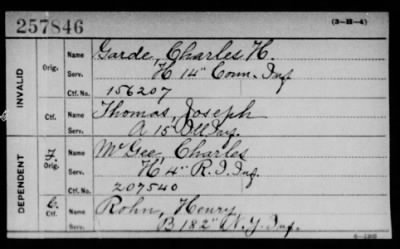 257846
(3-H-4)
INVALID
Orig. Name Garde, Charles H.
Serv. H 14" Conn. Inf
Ctf. No. 156207
Ctf. Name Thomas, Joseph
Serv. A 15 Ill Inf.
DEPENDENT
F. Orig. Name McGee, Charles
Serv. H, 4" R. I. Inf.
Ctf. No. 207540
C. Ctf. Name Rohn, Henry
Serv. B 182" N. Y. Inf.